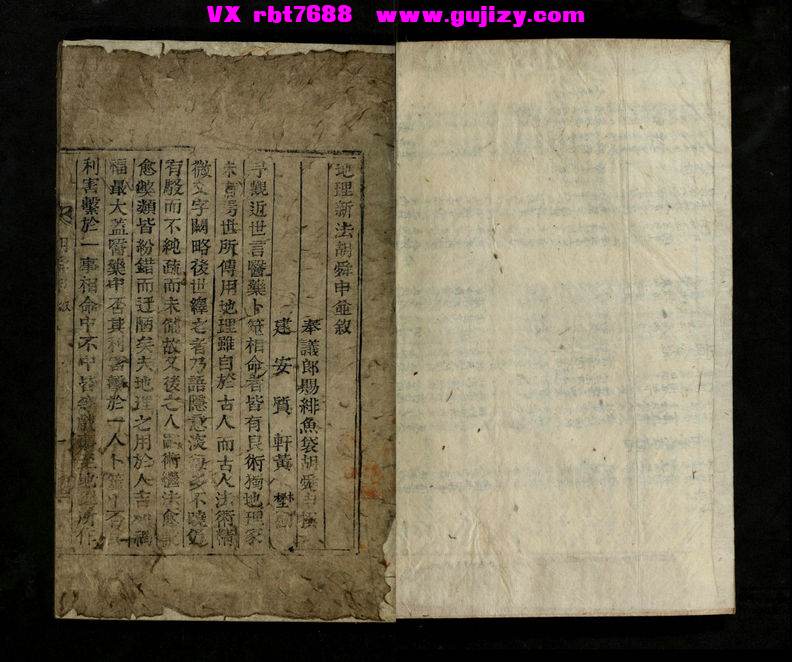 VX rbt7688 www.gujizy.com
地理新法胡舜申並叙
奉議郎賜緋魚袋胡舜申
建安質軒黃
予觀近世言醫藥卜筮相命者皆有良術獨地理家
世所傳用地理雖自於古人而古人法術精
微文字闕略後世繹之者乃語隱意多不曉
有駁而不純疏而未備故又後之人術法愈
愈繁類皆紛錯而迂陋矣夫地理之用於人吉禍
福最大蓋醫藥中否其利害繫於一人卜筮
利害繫於一事相命中不中皆地理所作